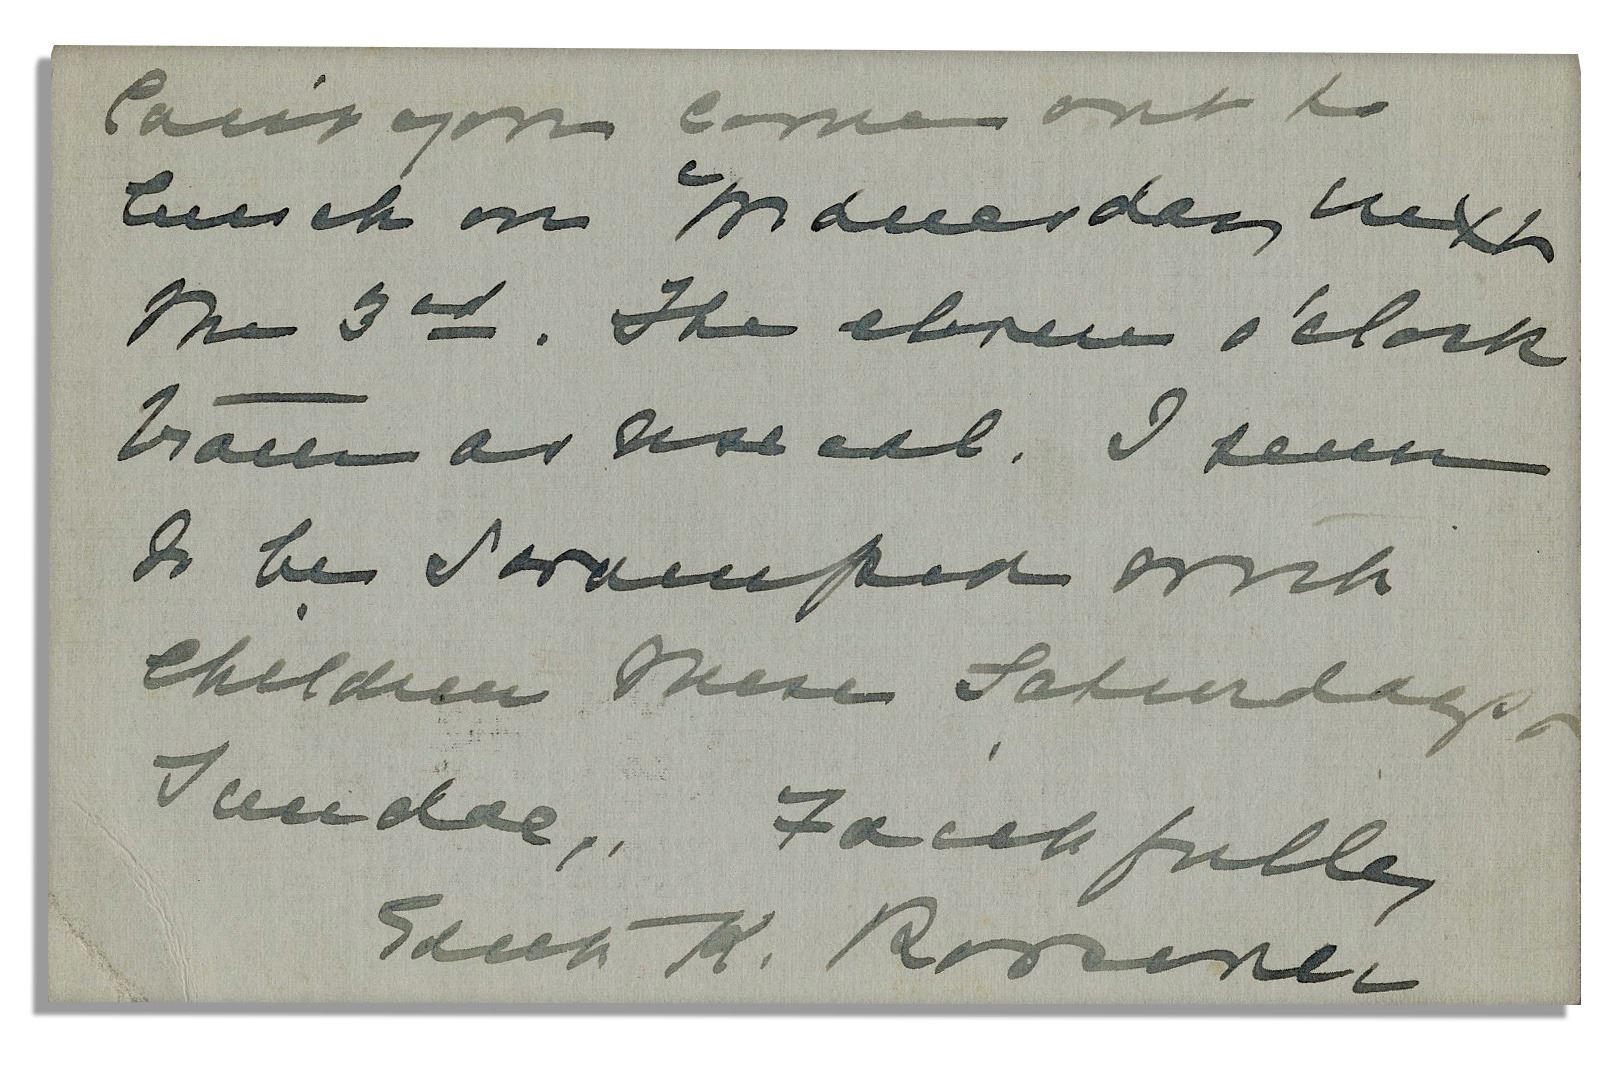 Can't you come out to
lunch on Wednesday next
the 3rd. The eleven o'clock
train as usual. I seem
to be swamped with
children these Saturdays &
Sundays. Faithfully
Edith K. Roosevelt